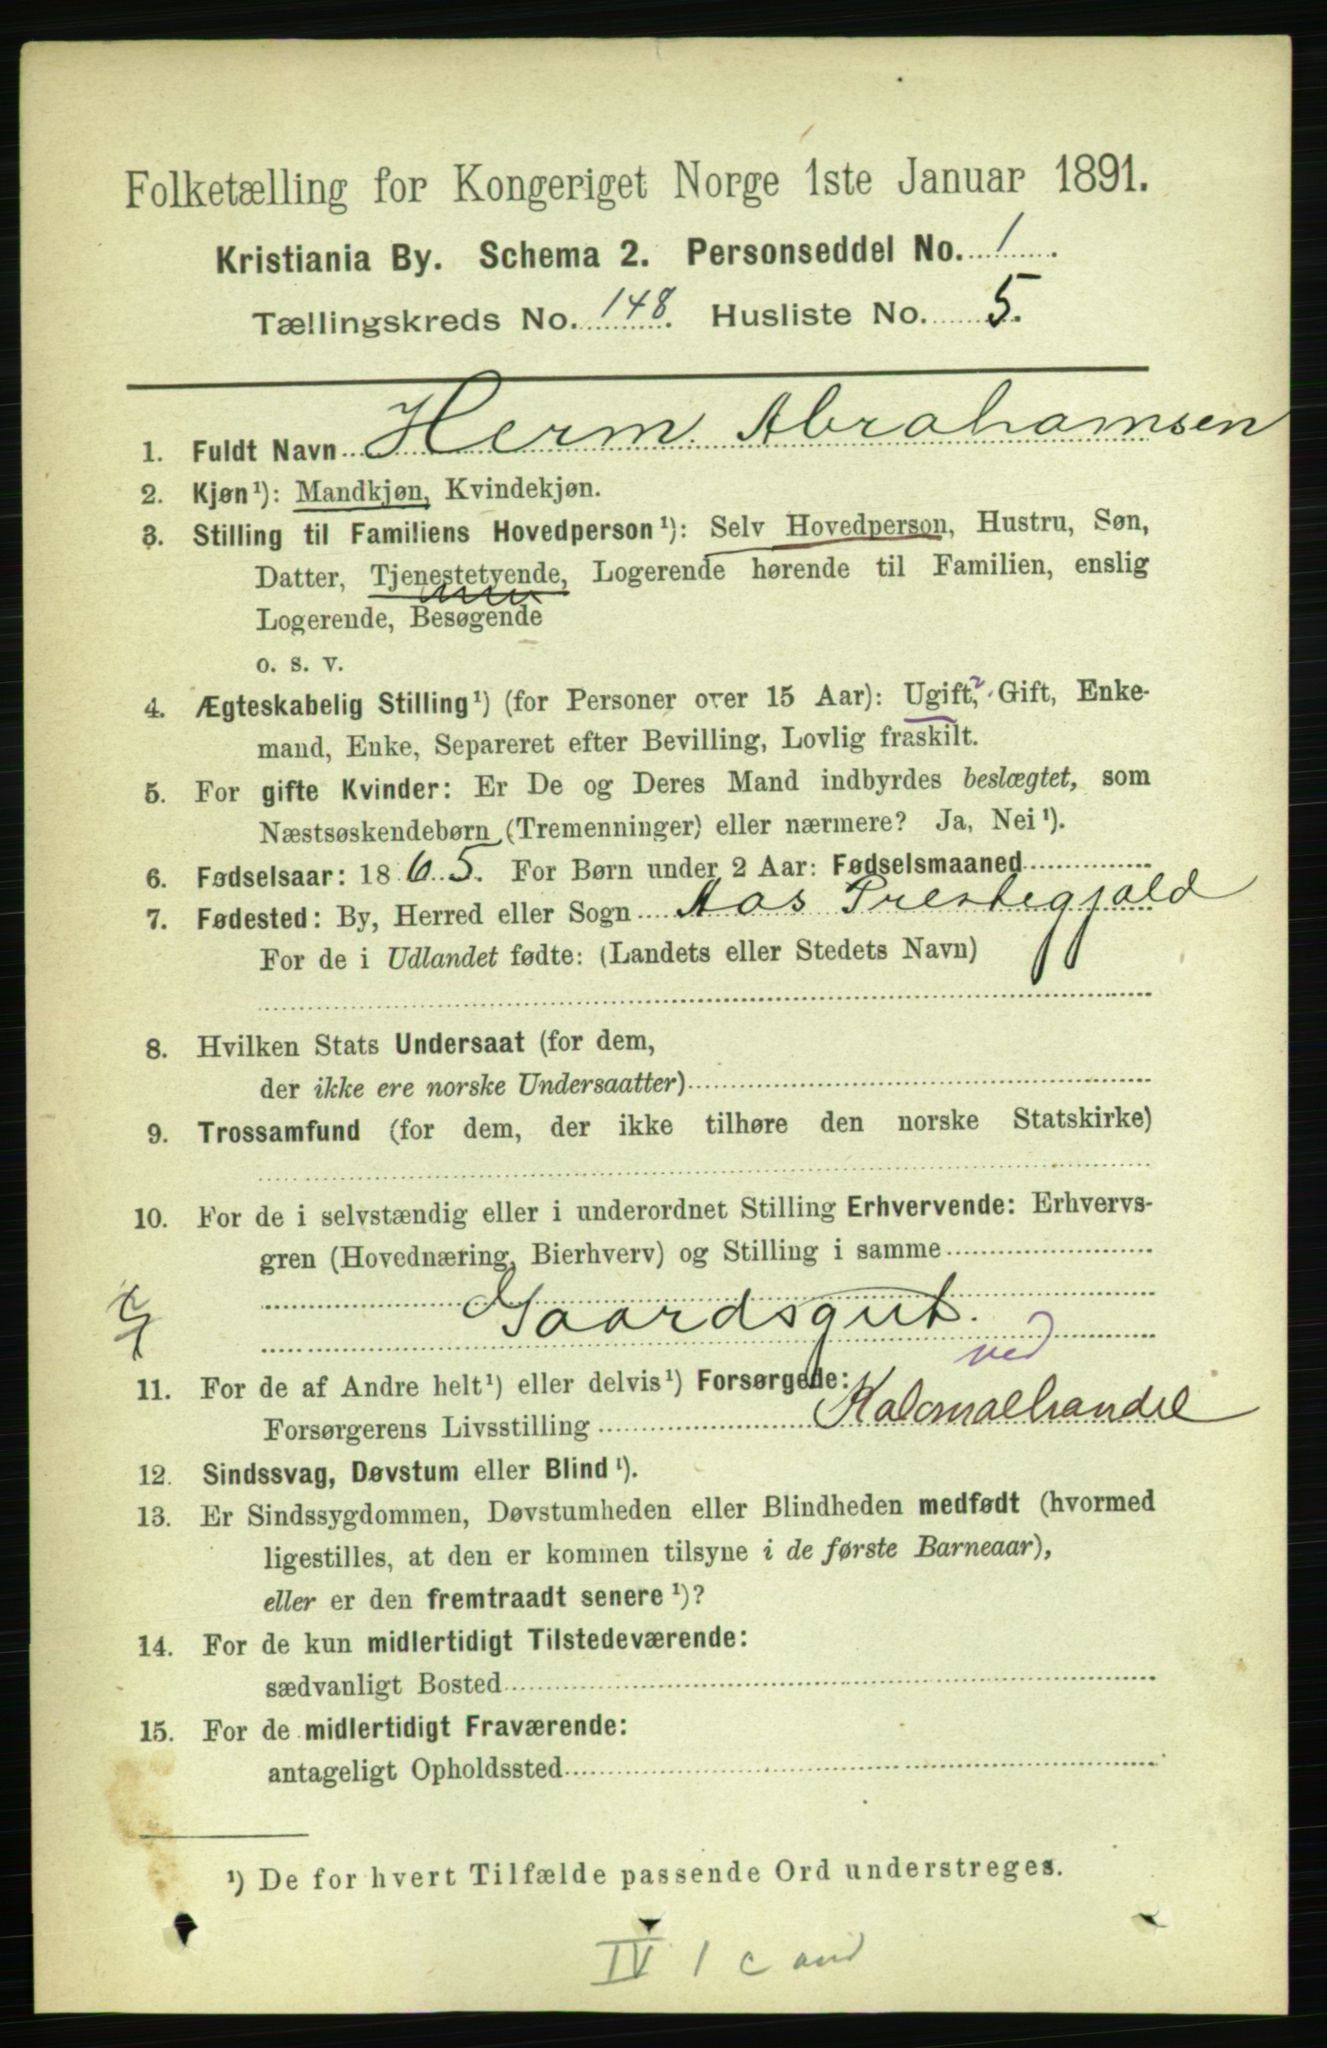 Folketælling for Kongeriget Norge 1ste Januar 1891.
Kristiania By. Schema 2. Personseddel No. 1.
Tællingskreds No. 148. Husliste No. 5.
1. Fuldt Navn Herm. Abrahamsen
2. Kjøn¹): Mandkjøn, Kvindekjøn.
3. Stilling til Familiens Hovedperson¹): Selv Hovedperson, Hustru, Søn,
Datter, Tjenestetyende, Logerende hørende til Familien, enslig
Logerende, Besøgende
o. s. v.
4. Ægteskabelig Stilling¹) (for Personer over 15 Aar): Ugift,² Gift, Enke-
mand, Enke, Separeret efter Bevilling, Lovlig fraskilt.
5. For gifte Kvinder: Er De og Deres Mand indbyrdes beslægtet, som
Næstsøskendebørn (Tremenninger) eller nærmere? Ja, Nei¹).
6. Fødselsaar: 1865. For Børn under 2 Aar: Fødselsmaaned
7. Fødested: By, Herred eller Sogn Aas Prestegjæld
For de i Udlandet fødte: (Landets eller Stedets Navn)
8. Hvilken Stats Undersaat (for dem,
der ikke ere norske Undersaatter)
9. Trossamfund (for dem, der ikke tilhøre den norske Statskirke)
10. For de i selvstændig eller i underordnet Stilling Erhvervende: Erhvervs-
gren (Hovednæring, Bierhverv) og Stilling i samme
Gaardsgut.
ved
11. For de af Andre helt¹) eller delvis¹) Forsørgede:
Forsørgerens Livsstilling Kolonialhandel
12. Sindssvag, Døvstum eller Blind¹).
13. Er Sindssygdommen, Døvstumheden eller Blindheden medfødt (hvormed
ligestilles, at den er kommen tilsyne i de første Barneaar),
eller er den fremtraadt senere¹)?
14. For de kun midlertidigt Tilstedeværende:
sædvanligt Bosted
15. For de midlertidigt Fraværende:
antageligt Opholdssted
¹) De for hvert Tilfælde passende Ord understreges.
IV 1 c and